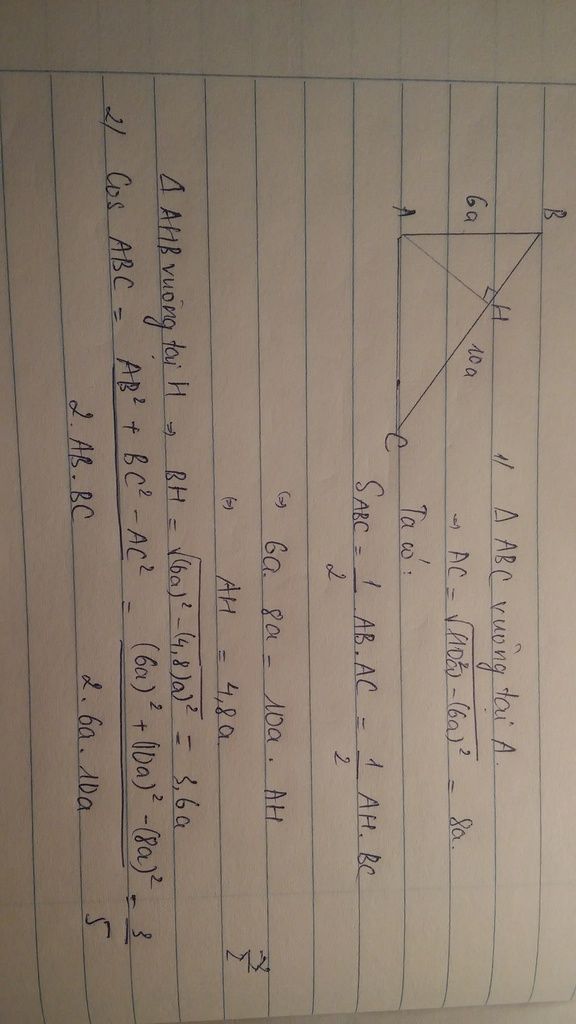 B
6a
H
10a
A
C
1/ Δ ABC vuông tại A.
⇒ AC = √(10a)² - (6a)² = 8a.
Ta có:
S ABC = 1/2 AB.AC = 1/2 AH.BC
(=) 6a. 8a = 10a. AH
(=) AH = 4,8a
Δ AHB vuông tại H ⇒ BH = √(6a)² - (4,8)a)² = 3,6a
2/ Cos ABC = AB² + BC² - AC² / 2.AB.BC = (6a)² + (10a)² - (8a)² / 2.6a.10a = 3/5